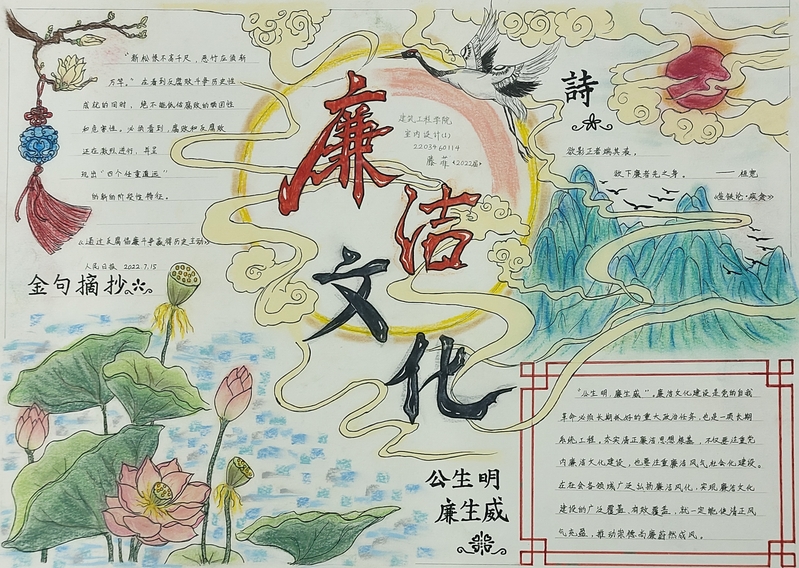 "新松恨不高千尺,恶竹应须斩
万竿。"在看到反腐败斗争历史性
成就的同时,绝不能低估腐败的顽固性
和危害性。必须看到,腐败和反腐败
还在激烈进行,并呈
现出"四个任重道远"
的新的阶段性特征。
《通过反腐倡廉斗争赢得历史主动》
人民日报 2022.7.15
金句摘抄
廉洁
文化
建筑工程学院
室内设计(1)
2203460114
《2022届》
詩
欲影正者端其表,
欲下廉者先之身。 —— 桓宽
《盐铁论·疾贪》
公生明
廉生威
"公生明,廉生威",廉洁文化建设是党的自我
革命必须长期抓好的重大政治任务,也是一项长期
系统工程,夯实清正廉洁思想根基,不仅要注重党
内廉洁文化建设,也要注重廉洁风气社会化建设。
在社会各领域广泛弘扬廉洁风化,实现廉洁文化
建设的广泛覆盖、有效覆盖,就一定能使清正风
气充盈,推动崇德尚廉蔚然成风。